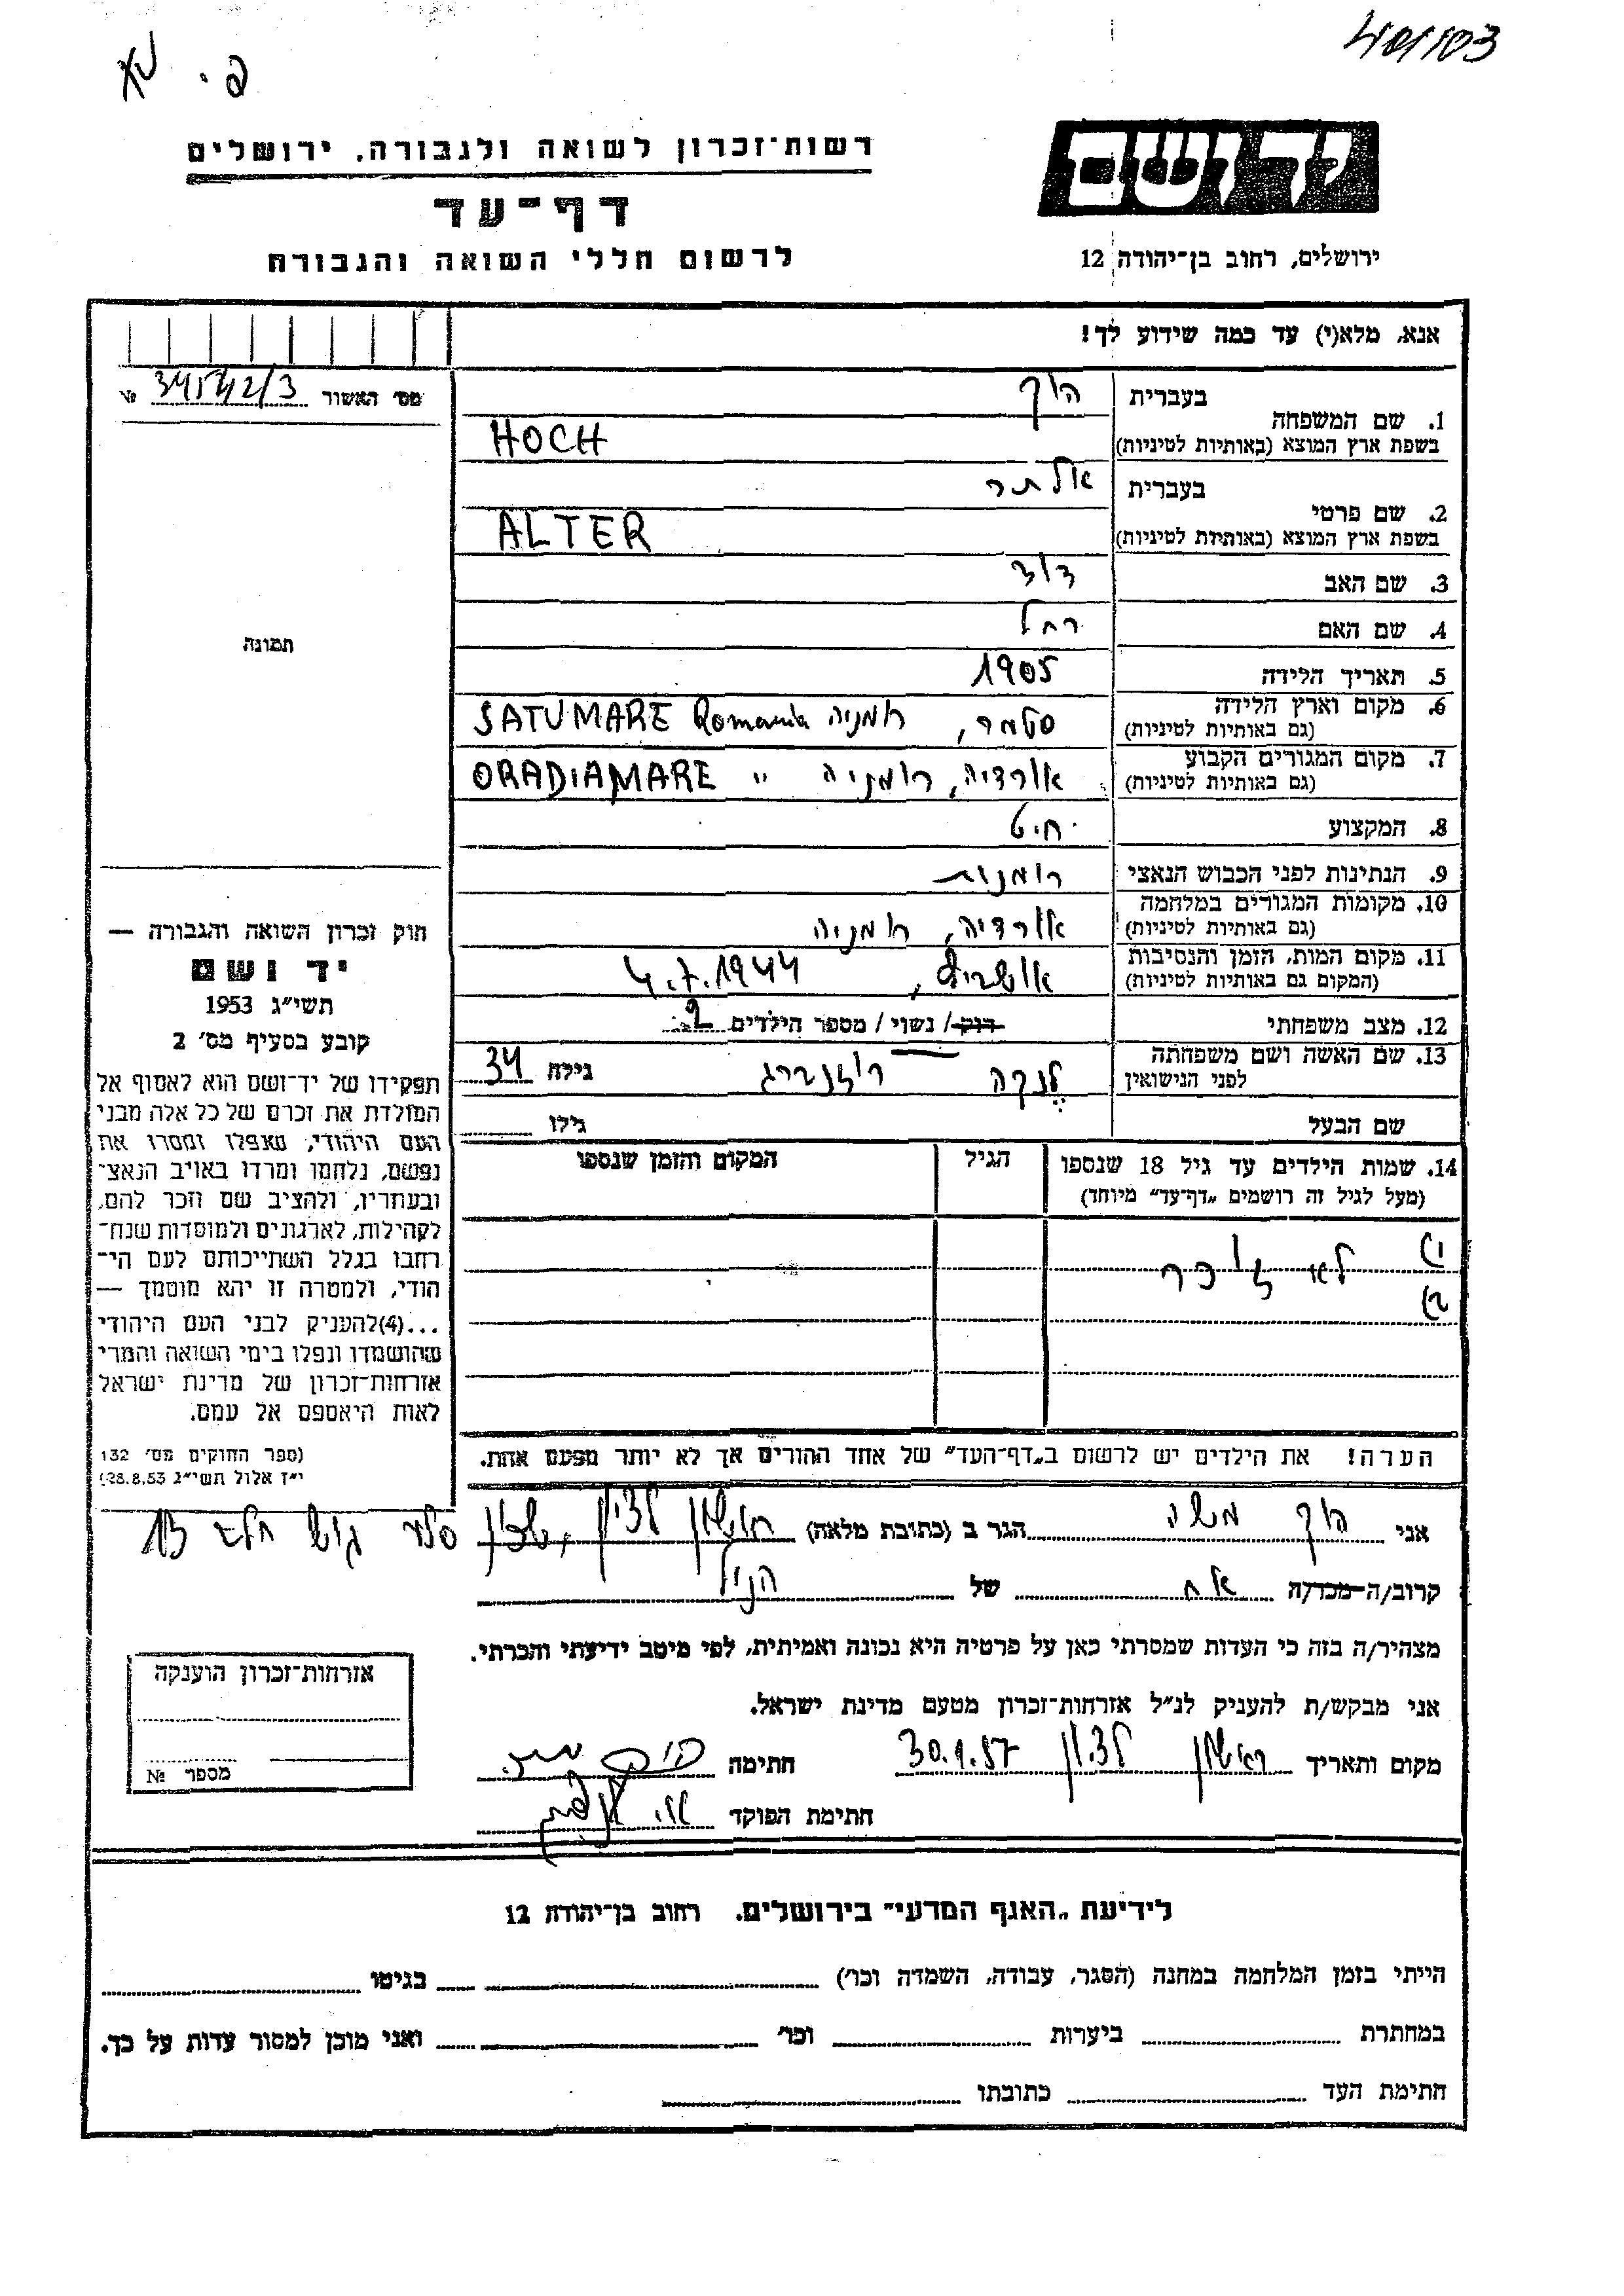 פ. י
401103
יד ושם
רשות־זכרון לשואה ולגבורה. ירושלים
דף־עד
לרשום חללי השואה והגבורה
ירושלים, רחוב בן־יהודה 12
אנא, מלא(י) עד כמה שידוע לך!
מס׳ האשור 34542/3 №
1. שם המשפחה
בעברית הוך
בשפת ארץ המוצא (באותיות לטיניות) HOCH
2. שם פרטי
בעברית אלתר
בשפת ארץ המוצא (באותיות לטיניות) ALTER
3. שם האב דוד
4. שם האם רחל
5. תאריך הלידה 1905
6. מקום וארץ הלידה סטמר, רומניה SATUMARE Romania
(גם באותיות לטיניות)
7. מקום המגורים הקבוע אורדיה, רומניה " ORADIAMARE
(גם באותיות לטיניות)
8. המקצוע חיט
9. הנתינות לפני הכבוש הנאצי רומנית
10. מקומות המגורים במלחמה אורדיה, רומניה
(גם באותיות לטיניות)
11. מקום המות, הזמן והנסיבות אושביץ, 4.7.1944
(המקום גם באותיות לטיניות)
12. מצב משפחתי רוק / נשוי / מספר הילדים 2
13. שם האשה ושם משפחתה לנקה רוזנברג גילה 34
לפני הנישואין
שם הבעל גילו
14. שמות הילדים עד גיל 18 שנספו הגיל המקום והזמן שנספו
(מעל לגיל זה רושמים „דף־עד״ מיוחד)
1) לא זוכר
2)
הערה! את הילדים יש לרשום ב„דף־העד״ של אחד ההורים אך לא יותר מפעם אחת.
תמונה
חוק זכרון השואה והגבורה —
יד ושם
תשי״ג 1953
קובע בסעיף מס׳ 2
תפקידו של יד־ושם הוא לאסוף אל
המולדת את זכרם של כל אלה מבני
העם היהודי, שנפלו ומסרו את
נפשם, נלחמו ומרדו באויב הנאצי
ובעוזריו, ולהציב שם וזכר להם,
לקהילות, לארגונים ולמוסדות שנח־
רבו בגלל השתייכותם לעם הי־
הודי, ולמטרה זו יהא מוסמך —
...(4)להעניק לבני העם היהודי
שהושמדו ונפלו בימי השואה והמרי
אזרחות־זכרון של מדינת ישראל
לאות היאספם אל עמם.
(ספר החוקים מס׳ 132
י״ז אלול תשי״ג 28.8.53)
אני הוך משה הגר ב (כתובת מלאה) ראשון לציון, שכון סלר גוש חלב 13
קרוב/ה מכר/ה אח של הנ״ל
מצהיר/ה בזה כי העדות שמסרתי כאן על פרטיה היא נכונה ואמיתית, לפי מיטב ידיעתי והכרתי.
אני מבקש/ת להעניק לנ״ל אזרחות־זכרון מטעם מדינת ישראל.
מקום ותאריך ראשון לציון 30.1.57 חתימה
חתימת הפוקד
אזרחות־זכרון הוענקה
מספר №
לידיעת „האגף המדעי״ בירושלים. רחוב בן־יהודה 12
הייתי בזמן המלחמה במחנה (הסגר, עבודה, השמדה וכו׳) בגיטו
במחתרת ביערות וכו׳ ואני מוכן למסור עדות על כך.
חתימת העד כתובתו